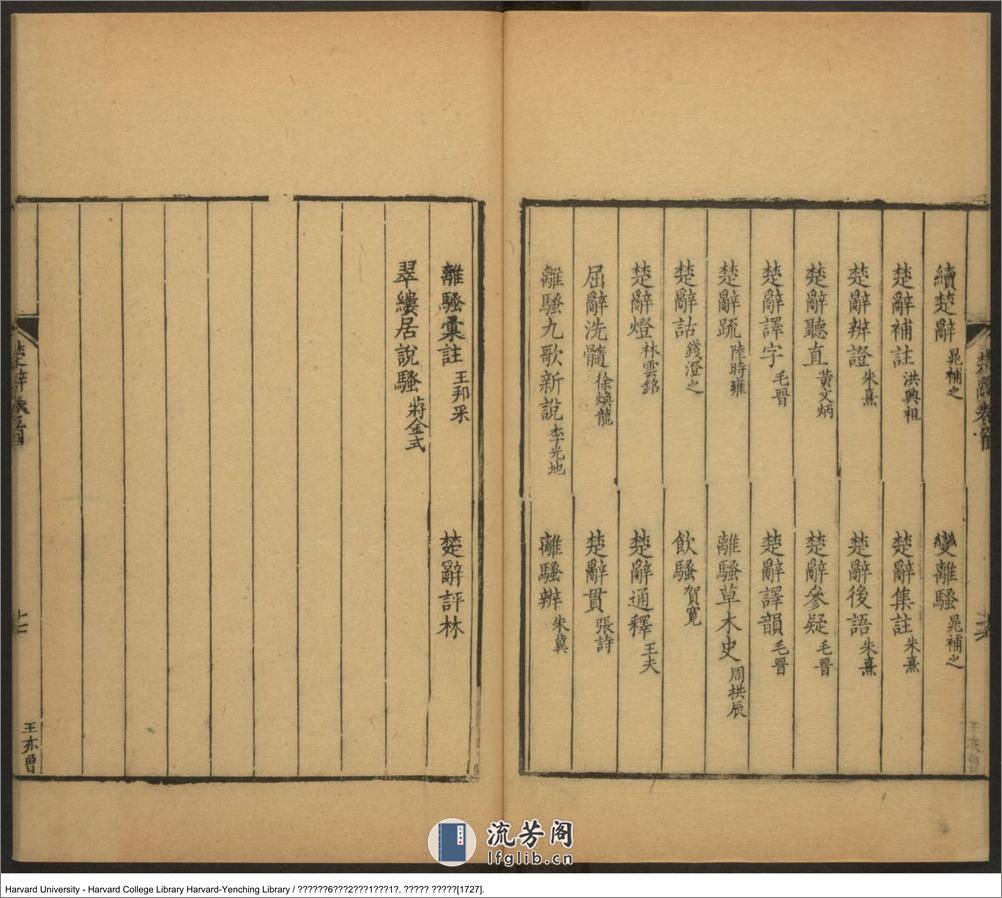 續楚辭 晁補之 變離騷 晁補之
楚辭補註 洪興祖 楚辭集註 朱熹
楚辭辨證 朱熹 楚辭後語 朱熹
楚辭聽直 黃文炳 楚辭參疑 毛晉
楚辭譯字 毛晉 楚辭譯韻 毛晉
楚辭疏 陸時雍 離騷草木史 周拱辰
楚辭詁 錢澄之 飲騷 賀寬
楚辭燈 林雲銘 楚辭通釋 王夫
屈辭洗髓 徐煥龍 楚辭貫 張詩
離騷九歌新說 李光地 離騷辨 朱冀
離騷彙註 王邦采 楚辭評林
翠縷居說騷 蔣金式
王亦曾
流芳阁
lfglib.cn
Harvard University - Harvard College Library Harvard-Yenching Library / ??????6???2???1???1?. ????? ?????[1727].